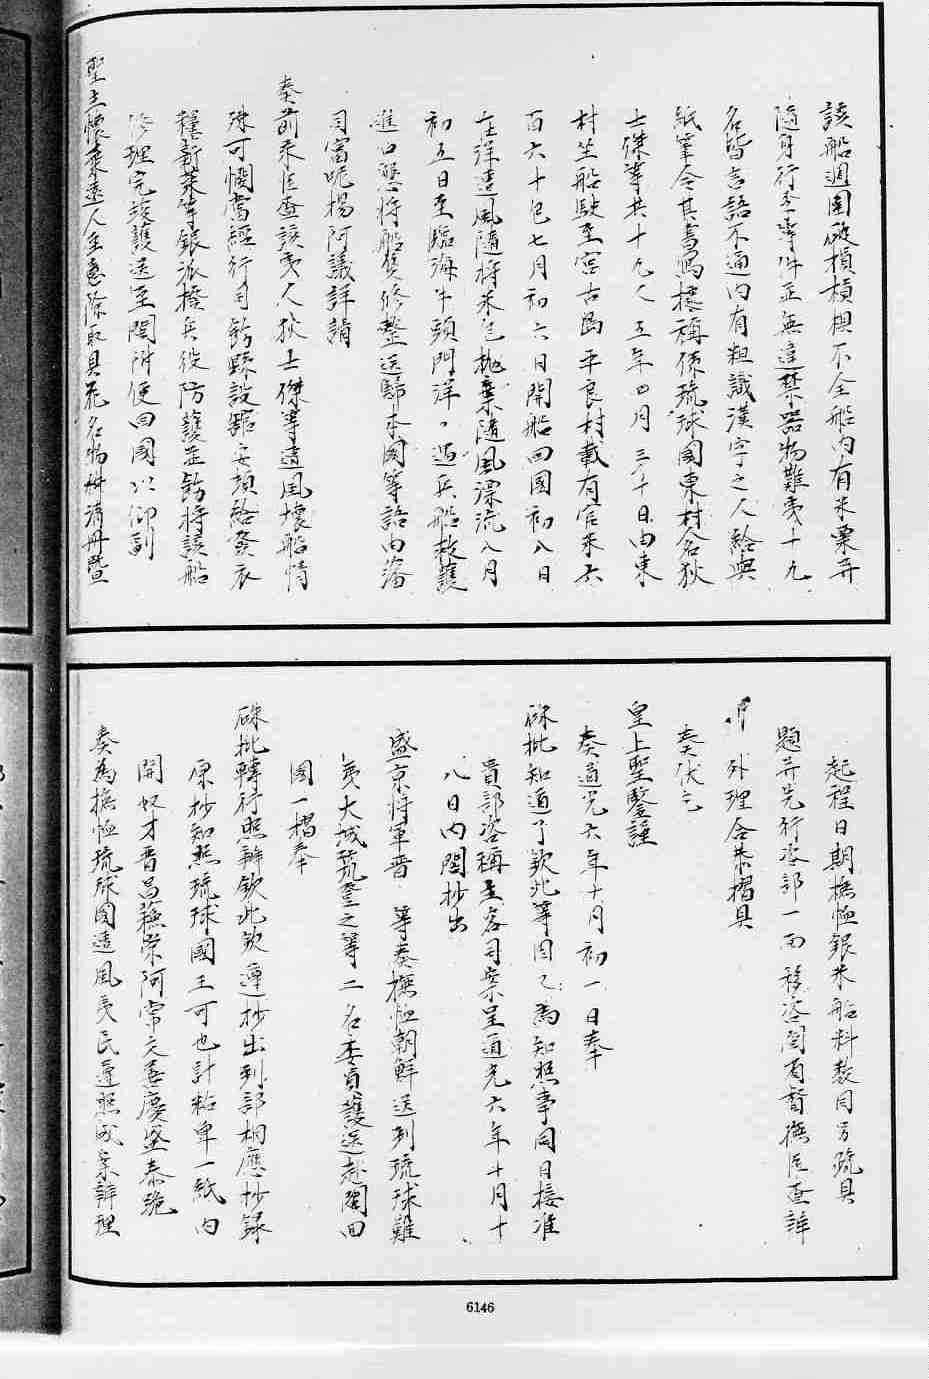 該船週圍破損槓椇不全船内有米粟并
隨身行李等件並無違禁器物難夷十九
名皆言語不通内有粗識漢字之人給與
紙筆令其書寫據稱係琉球國東村人名狄
士傑等共十九人五年四月三十日由東
村坐船駛至宮古島平良村載有官米六
百六十包七月初六日開船回國初八日
在洋遭風隨將米包拋棄隨風漂流八月
初五日至臨海牛頭門洋面遇兵船救護
進口懇將船隻修整送歸本國等語由藩
司富呢揚阿議詳請
奏前來臣查該夷人狄士傑等遭風壞船情
殊可憫當經行司飭縣設館安頓給發衣
糧薪菜等銀派撥兵役防護並飭將該船
修理完護護送至閩附便回國以仰副
聖主懷柔遠人至意除取具花名物件清冊暨
起程日期撫恤銀米船料數目另疏具
題并先行咨部一面移咨閩省督撫臣查辦
外理合恭摺具
奏伏乞
皇上聖鑒謹
奏道光六年十月初一日奉
硃批知道了欽此等因又為知照事同日接准
貴部咨稱主客司案呈道光六年十月十
八日内閣抄出
盛京將軍晋 等奏撫恤朝鮮送到琉球難
夷大城筑登之等二名委員護送赴閩回
國一摺奉
硃批轉行照辦欽此欽遵抄出到部相應抄録
原抄知照琉球國王可也計粘单一紙内
開奴才晋昌蕪榮阿常文善慶盛泰跪
奏為撫恤琉球國遭風夷民遵照成案辦理
6146